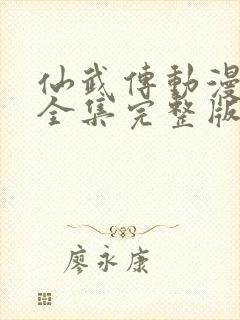 仙武傳動漫
全集完整版
廖永康